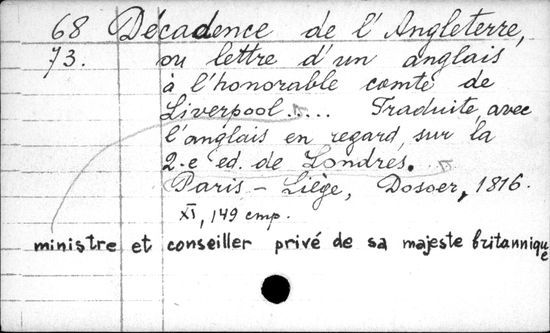 68 Décadence de l'Angleterre,
73. ou lettre d'un anglais
à l'honorable comte de
Liverpool..... Traduite avec
l'anglais en regard, sur la
2-e ed. de Londres.
Paris – Liège, Dosoer, 1816.
XI, 149 стр.
ministre et conseiller privé de sa majeste britannique